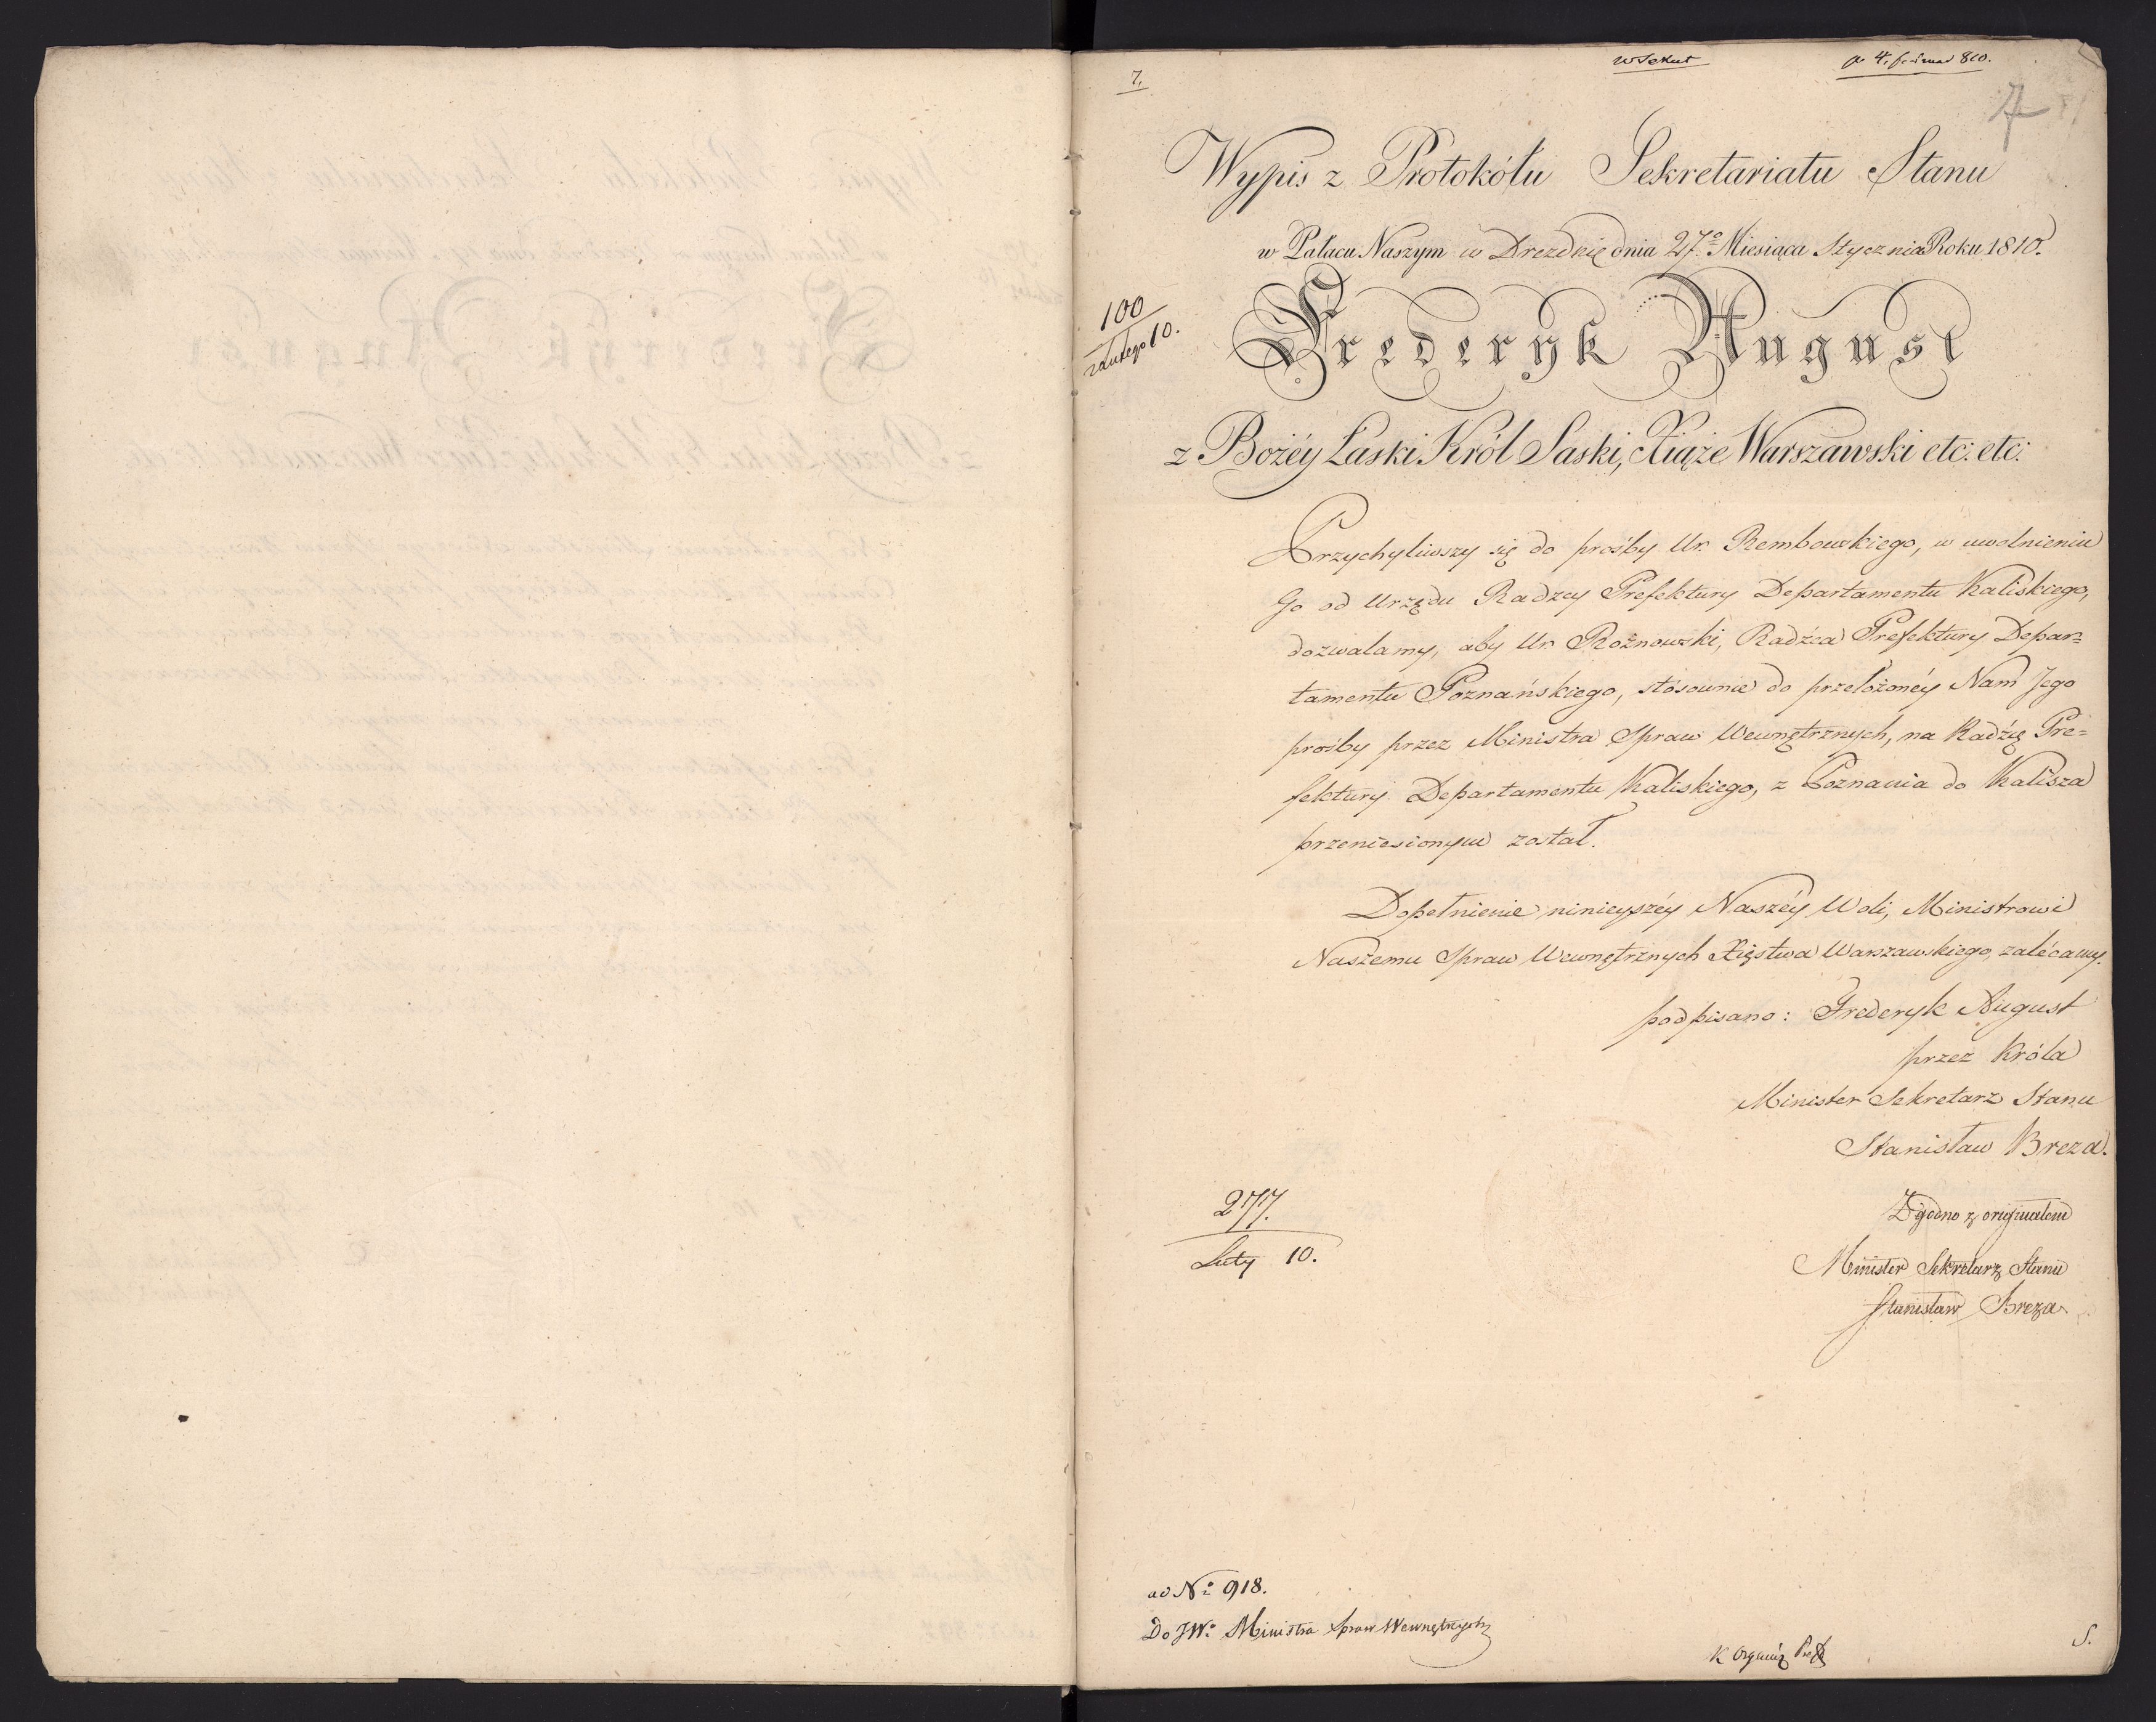 7.
pr 4. februar 810.
7
Wypis z Protokółu Sekretariatu Stanu
w Pałacu Naszym w Dreznie dnia 27º Miesiąca Stycznia Roku 1810.
100
Lutego 10.
Frederyk August
z Bożéy Łaski Król Saski, Xiąże Warszawski etc: etc:
Przychyliwszy się do prośby Ur. Rembowskiego, w uwolnieniu
Go od Urzędu Radzcy Prefektury Departamentu Kaliskiego,
dozwalamy, aby Ur. Rożnowski, Radźca Prefektury Depar=
tamentu Poznańskiego, stósownie do przełożonéy Nam Jego
prośby przez Ministra Spraw Wewnętrznych, na Radźcę Pre=
fektury Departamentu Kaliskiego, z Poznania do Kalisza
przeniesionym został.
Dopełnienie ninieyszéy Naszéy Woli, Ministrowi
Naszemu Spraw Wewnętrznych Xięstwa Warszawskiego, zalécamy.
podpisano: Frederyk August
przez Króla
Minister Sekretarz Stanu
Stanisław Breza.
277.
Luty 10.
Zgodno z originałem
Minister Sekretarz Stanu
Stanisław Breza
ad Nº 918.
Do JW: Ministra Spraw Wewnętrznych
S.